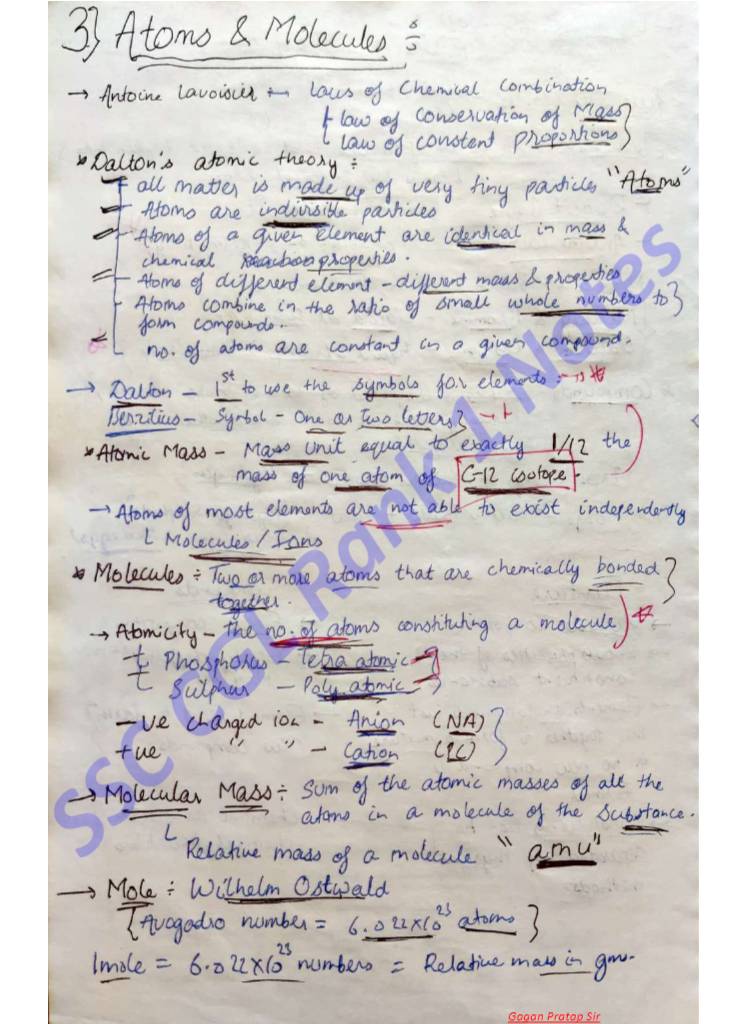 3.} Atoms & Molecules :-
→ Antoine Lavoisier ← Laws of Chemical Combination
law of conservation of Mass
law of constant proportions
* Dalton's atomic theory :
all matter is made up of very tiny particles "Atoms"
Atoms are indivisible particles
Atoms of a given element are identical in mass &
chemical properties.
Atoms of different element - different mass & properties
Atoms combine in the ratio of small whole numbers to
form compounds.
no. of atoms are constant in a given compound.
→ Dalton - 1st to use the symbols for elements :
Berzilius - Symbol - One or two letters
* Atomic Mass - Mass Unit equal to exactly 1/12 the
mass of one atom of C-12 isotope.
→ Atoms of most elements are not able to exist independently
Molecules / Ions
* Molecules ÷ Two or more atoms that are chemically bonded
together.
→ Atomicity - The no. of atoms constituting a molecule
Phosphorus - Tetra atomic
Sulphur - Poly atomic
-ve charged ion - Anion (NA)
+ve " " - Cation (PC)
→ Molecular Mass ÷ Sum of the atomic masses of all the
atoms in a molecule of the substance.
Relative mass of a molecule "amu"
→ Mole ÷ Wilhelm Ostwald
{Avogadro number = 6.022×10^23 atoms}
1mole = 6.022×10^23 numbers = Relative mass in gms.
SSC CGL Rank 1 Notes
Gagan Pratap Sir